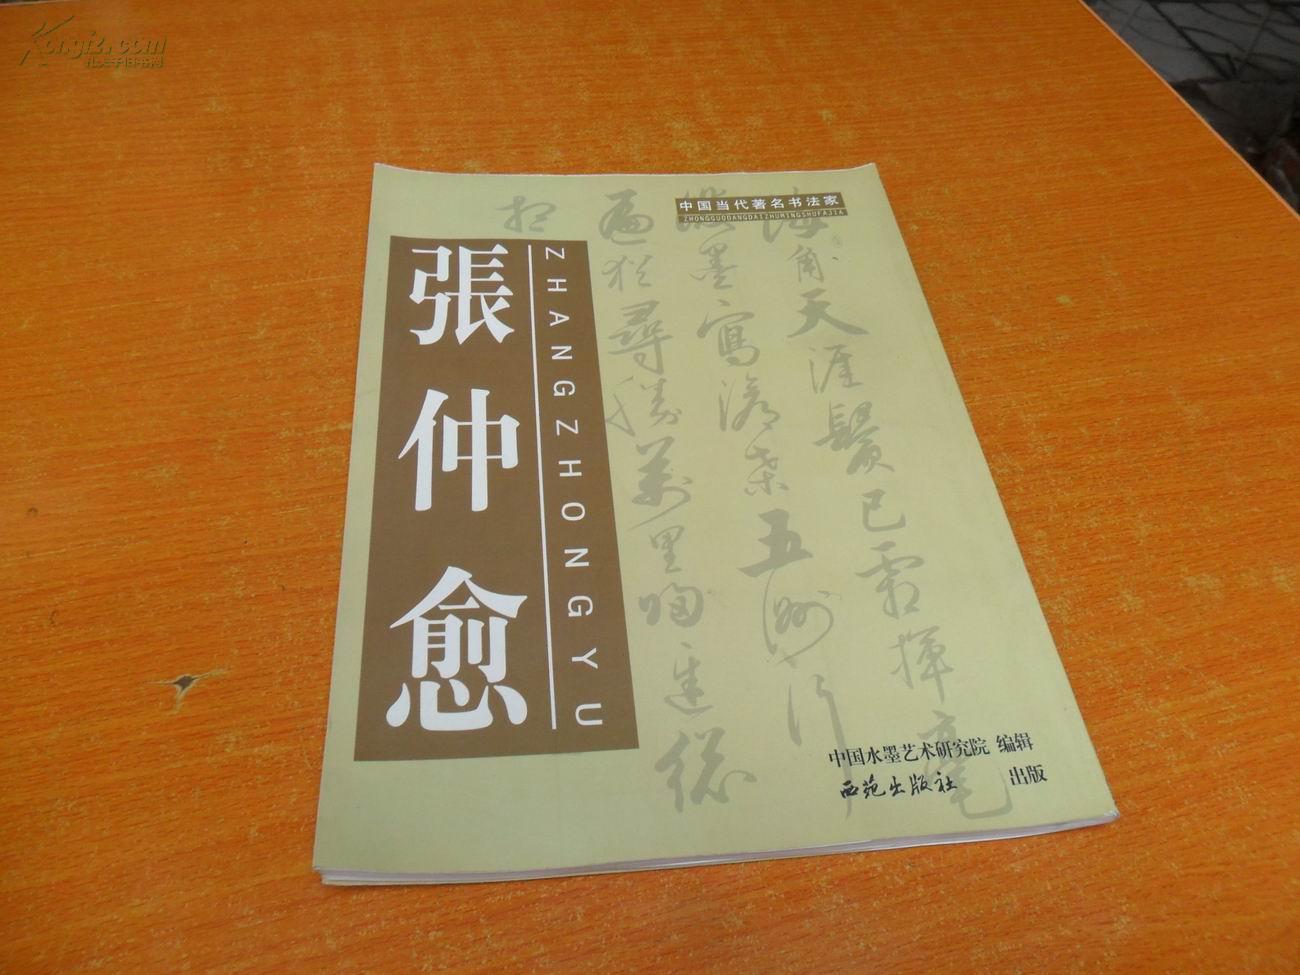 Kongfz.com
孔夫子旧书网
中国当代著名书法家
ZHONGGUODANGDAIZHUMINGSHUFAJIA
張仲愈
ZHANGZHONGYU
海角天涯鬓已霜揮毫
潑墨寫滄桑五洲行
遍猶尋勝萬里歸来
中国水墨艺术研究院 编辑
西苑出版社 出版